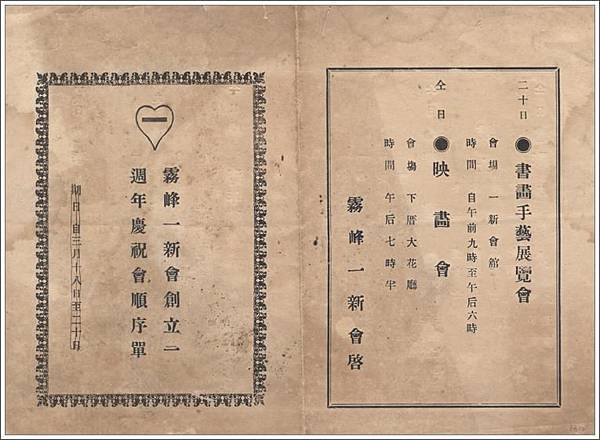 二十日 ●書畫手藝展覽會
會場 一新會館
時間 自午前九時至午后六時
仝日 ●映畫會
會場 下厝大花廳
時間 午后七時半
霧峰一新會啓
一
霧峰一新會創立二
週年慶祝會順序單
期日自三月十八日至二十日